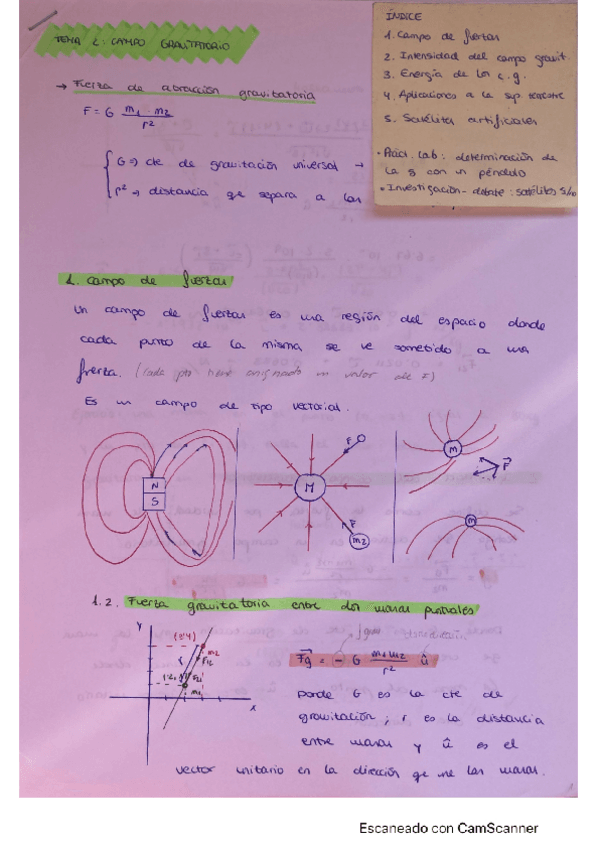 TEMA 2: CAMPO GRAVITATORIO
ÍNDICE
1. Campo de fuerzas
2. Intensidad del campo gravit.
3. Energía de los c.g.
4. Aplicaciones a la sup terrestre
5. Satélites artificiales
• Práct. Lab: determinación de
la g con un péndulo
• Investigación-debate: satélites s/n
→ Fuerza de atracción gravitatoria
F = G m1 · m2 / r²
G => cte de gravitación universal →
r² → distancia qe separa a las
1. Campo de fuerzas
Un campo de fuerzas es una región del espacio donde
cada punto de la misma se ve sometido a una
fuerza. (cada pto tiene asignado un valor de F)
Es un campo de tipo vectorial.
N
S
M
F
F
m2
m
F
m
1.2. Fuerza gravitatoria entre dos masas puntuales
y
x
m2
m1
r
Fg = - G m1m2 / r² û
Donde G es la cte de
gravitación, r es la distancia
entre masas y û es el
vector unitario en la dirección qe une las masas.
Escaneado con CamScanner